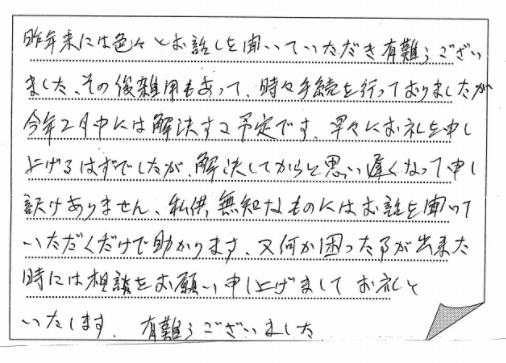 昨年末には色々とお話しを聞いていただき有難うござい
ました、その後雑用もあって、時々手続を行っておりましたが
今年2月中には解決する予定です、早々にお礼を申し
上げるはずでしたが、解決してからと思い遅くなって申し
訳けありません、私供無知なものにはお話を聞いて
いただくだけで助かります、又何か困った事が出来た
時には相談をお願い申し上げまして お礼と
いたします、有難うございました